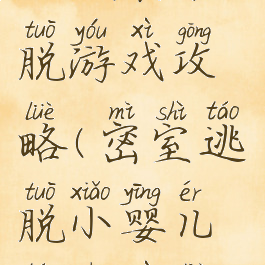 tuō yóu xì gōng
脱游戏攻
lüè mì shì táo
略(密室逃
tuō xiǎo yīng ér
脱小婴儿